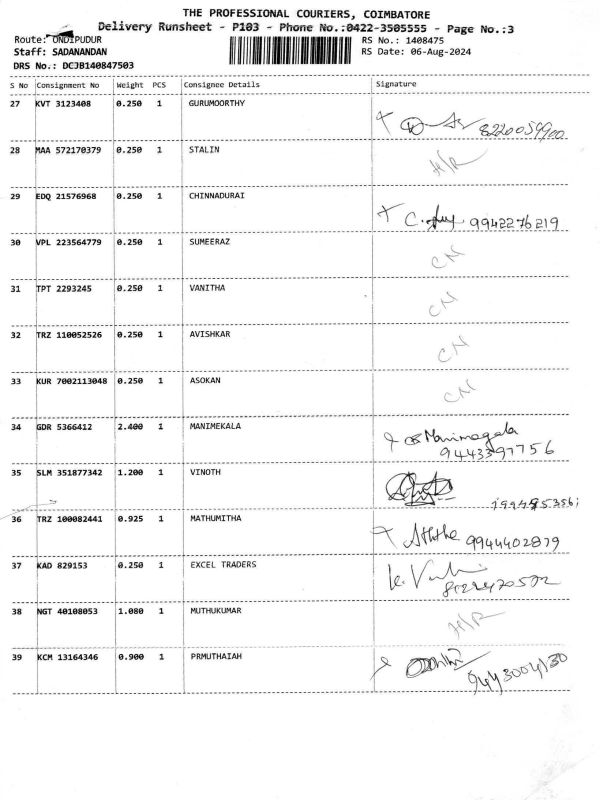 THE PROFESSIONAL COURIERS, COIMBATORE
Delivery Runsheet - P103 - Phone No.:0422-3505555 - Page No.:3
Route: ONDIPUDUR RS No.: 1408475
Staff: SADANANDAN RS Date: 06-Aug-2024
DRS No.: DCJB140847503
S No Consignment No Weight PCS Consignee Details Signature
27 KVT 3123408 0.250 1 GURUMOORTHY
8220059900
28 MAA 572170379 0.250 1 STALIN
H/R
29 EDQ 21576968 0.250 1 CHINNADURAI
9942276219
30 VPL 223564779 0.250 1 SUMEERAZ
CN
31 TPT 2293245 0.250 1 VANITHA
CN
32 TRZ 110052526 0.250 1 AVISHKAR
CN
33 KUR 7002113048 0.250 1 ASOKAN
CN
34 GDR 5366412 2.400 1 MANIMEKALA
Manimegala
9443397756
35 SLM 351877342 1.200 1 VINOTH
36 TRZ 100082441 0.925 1 MATHUMITHA
9944402879
37 KAD 829153 0.250 1 EXCEL TRADERS
38 NGT 40108053 1.080 1 MUTHUKUMAR
H/R
39 KCM 13164346 0.900 1 PRMUTHAIAH
9443004130